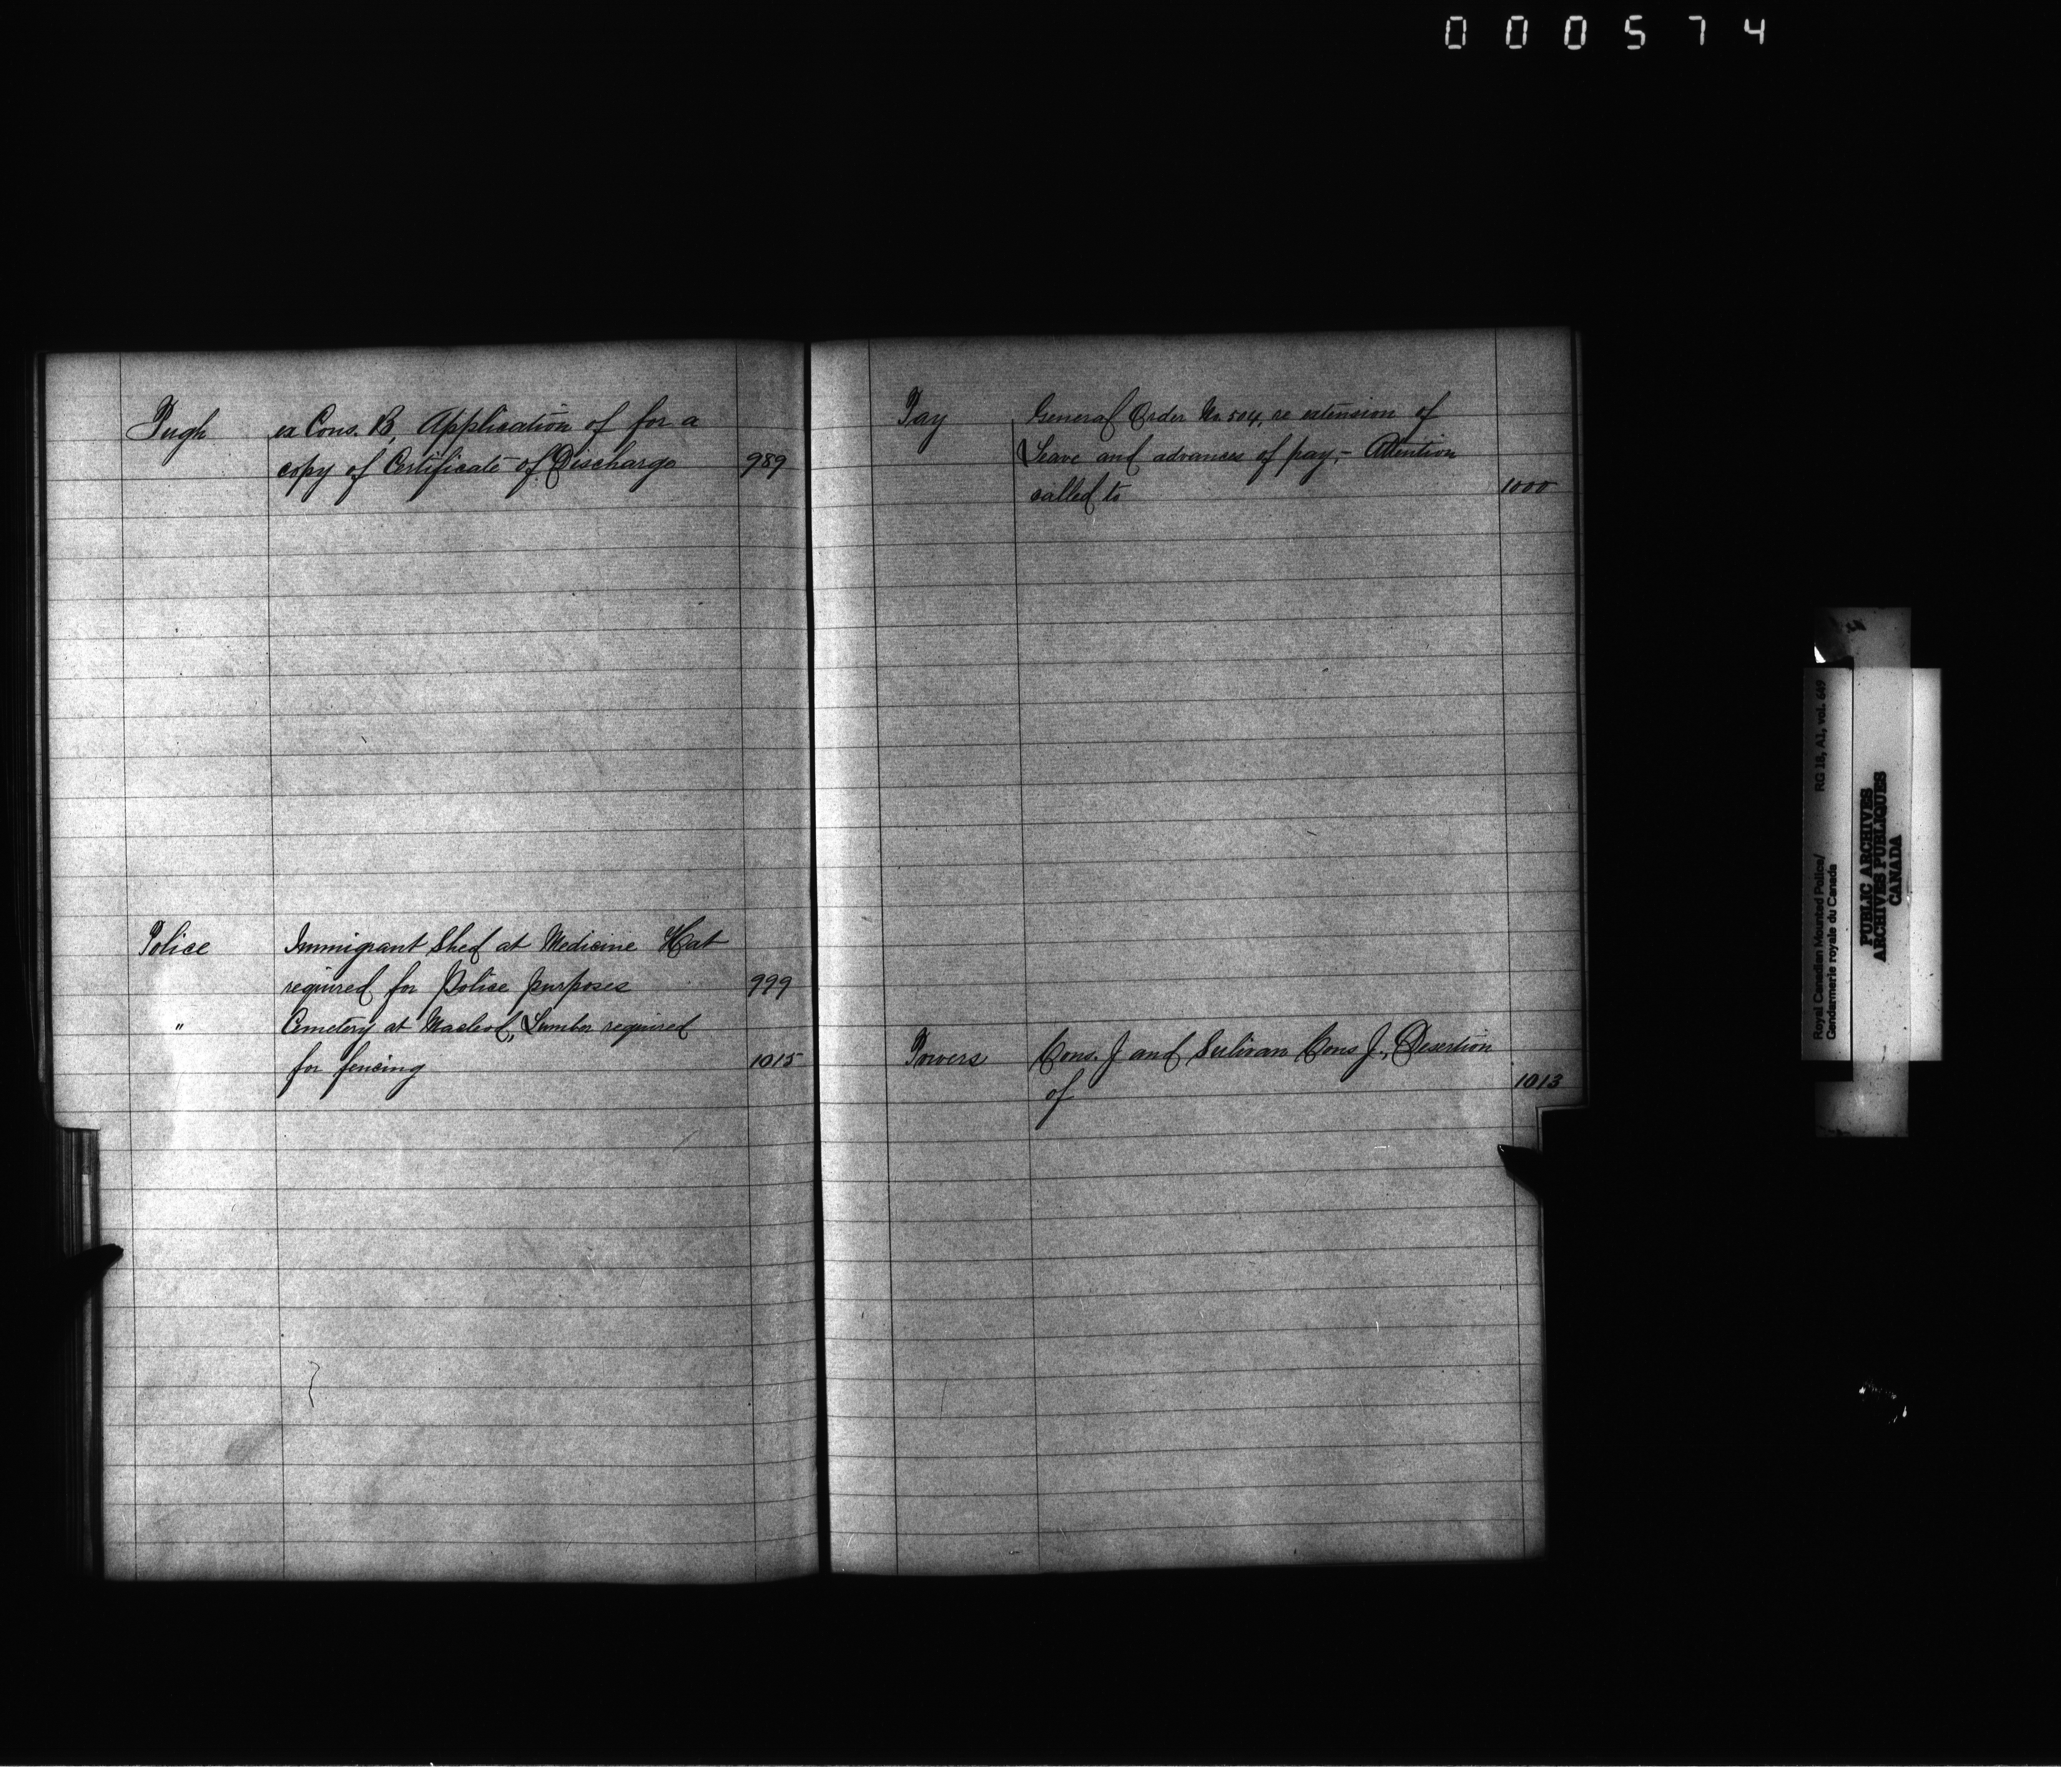 000574
Pugh ex Cons. B, Application of for a
copy of Certificate of Discharge 989
Police Immigrant Shed at Medicine Hat
required for Police purposes 999
" Cemetery at Macleod, Lumber required
for fencing 1015
Pay General Order No. 504, re extension of
Leave and advances of pay,- Attention
called to 1000
Powers Cons. J and Sulivan Cons J., Desertion
of 1013
Royal Canadian Mounted Police/ RG 18, A1, vol. 649
Gendarmerie royale du Canada
PUBLIC ARCHIVES
ARCHIVES PUBLIQUES
CANADA